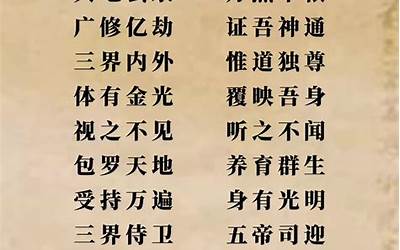 广修亿劫 证吾神通
三界内外 惟道独尊
体有金光 覆映吾身
视之不见 听之不闻
包罗天地 养育群生
受持万遍 身有光明
三界侍卫 五帝司迎